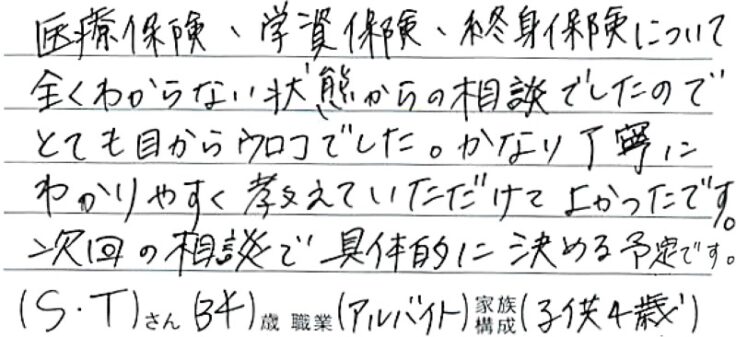 医療保険、学資保険、終身保険について
全くわからない状態からの相談でしたので
とても目からウロコでした。かなり丁寧に
わかりやすく教えていただけてよかったです。
次回の相談で具体的に決める予定です。
(S・T)さん(34)歳 職業(アルバイト)家族構成(子供4歳)